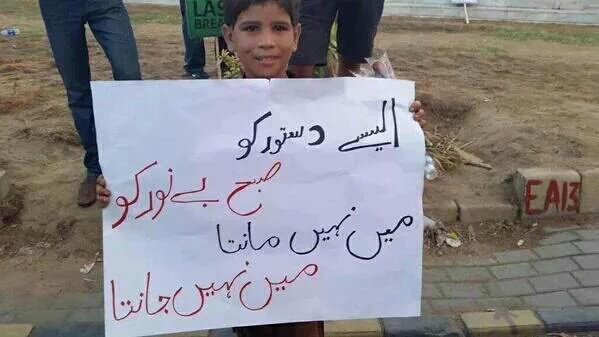 LAS
BREA
ایسے دستور کو
صبح بے نور کو
میں نہیں مانتا
میں نہیں جانتا
EA13